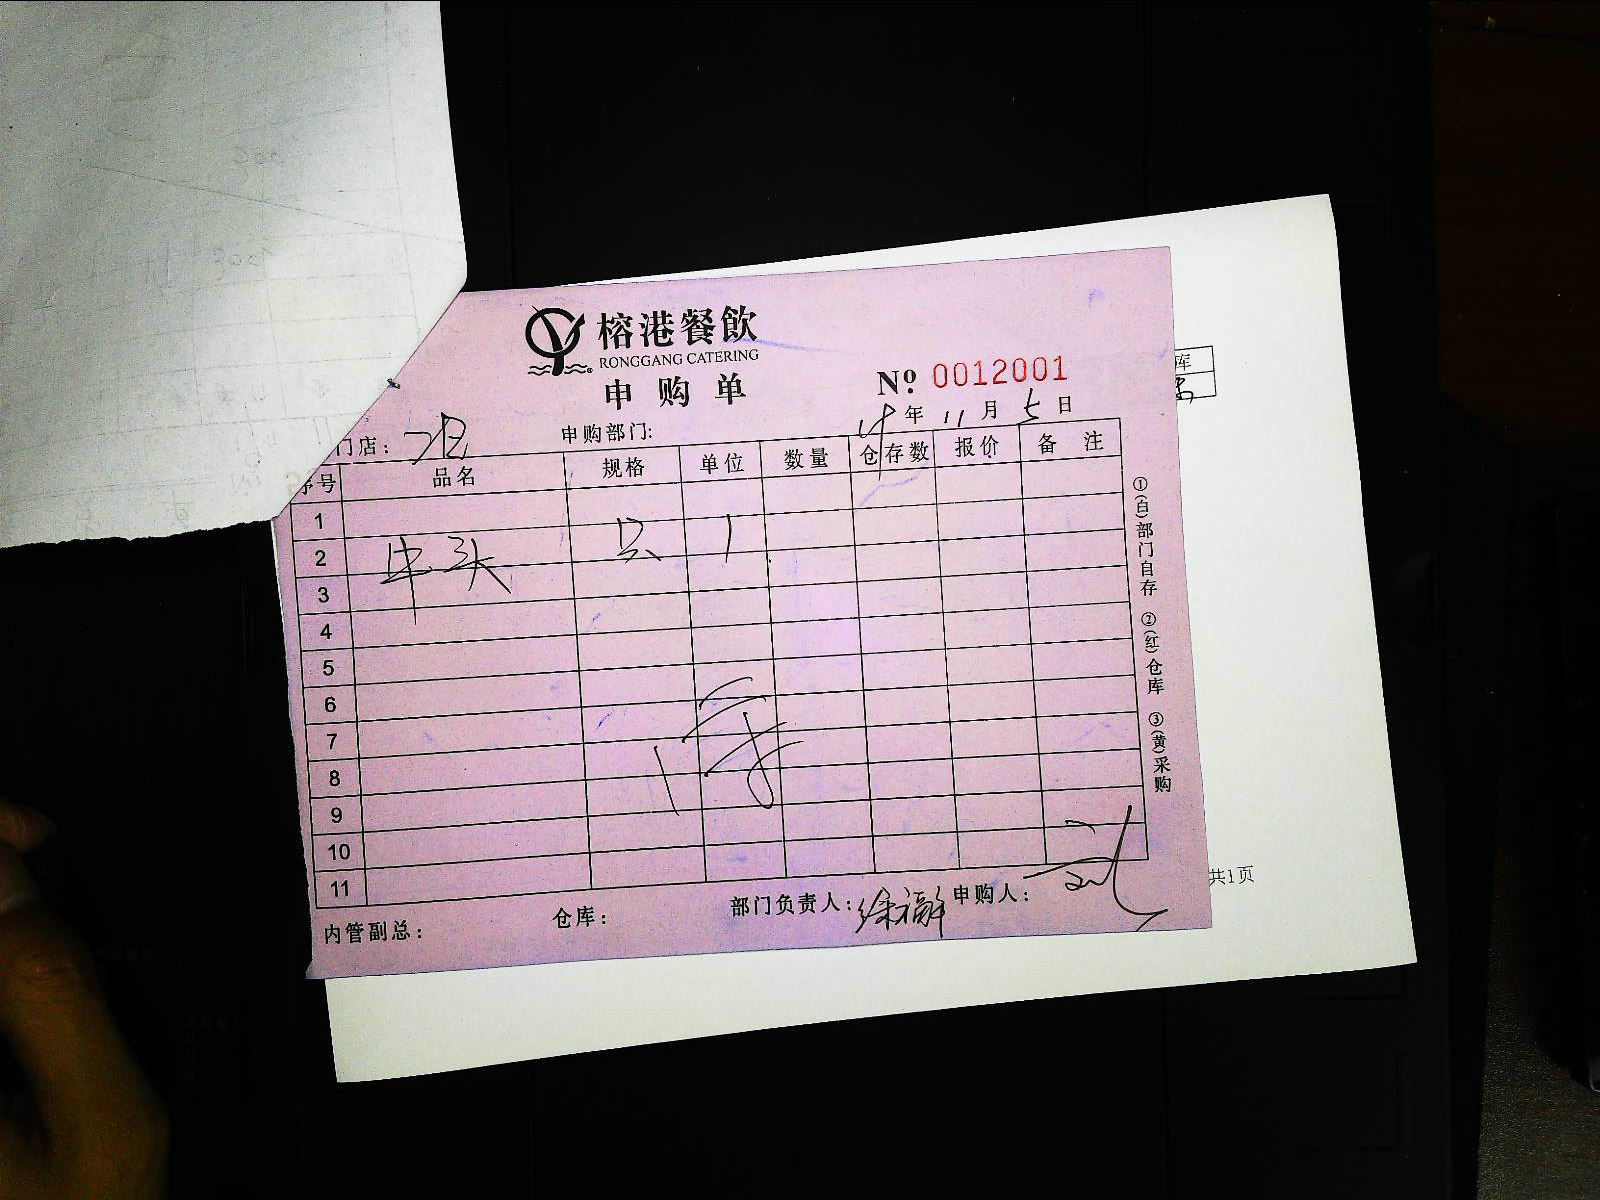 榕港餐飲
RONGGANG CATERING
申购单
№ 0012001
年 11 月 5 日
门店:
申购部门:
序号 品名 规格 单位 数量 仓存数 报价 备注
1
2 牛头 只 1
3
4
5
6
7
8
9
10
11
内管副总: 仓库: 部门负责人: 申购人: 刘
①(白)部门自存 ②(红)仓库 ③(黄)采购
库
共1页